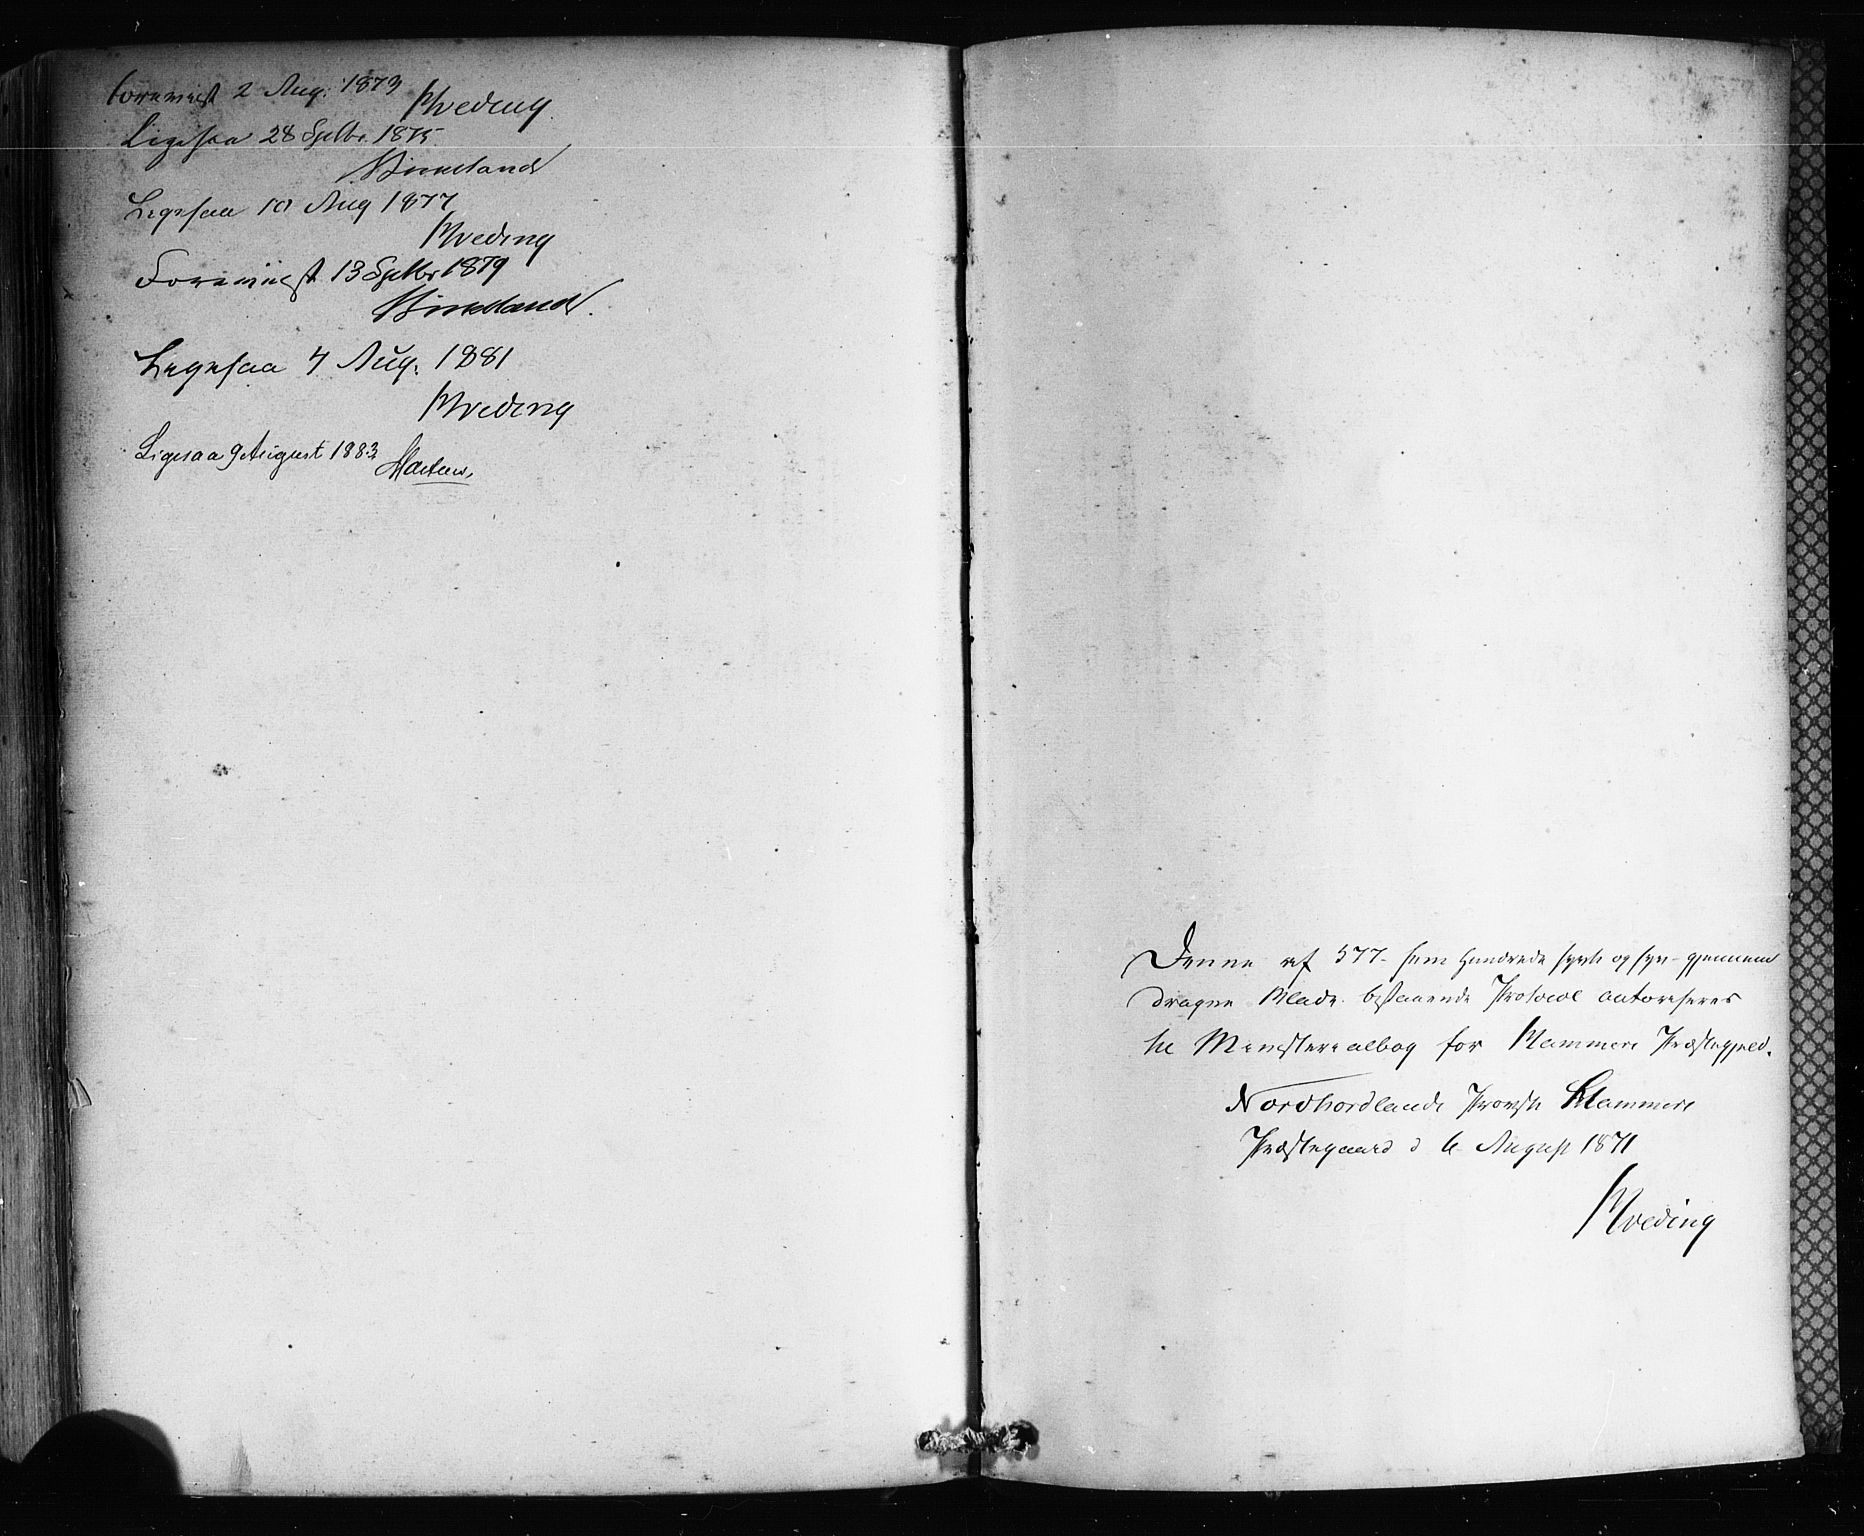 Forevist 2 Aug: 1873
Kreding.
Ligesaa 28 Septbr. 1875.
Birkeland
Ligesaa 10 Aug 1877
Kreding
Forevist 13 Septbr 1879
Birkeland.
Ligesaa 4 Aug. 1881
Kreding
Ligesaa 9 August 1883
Denne af 577 fem Hundrede sytti og syv gjennem
dragne Blade bestaaende Protocol autoriseres
til Ministerialbog for Hammers Præstegjeld.
Nordhordlands Provsti Hammers
Præstegaard d 6 August 1871
Kreding